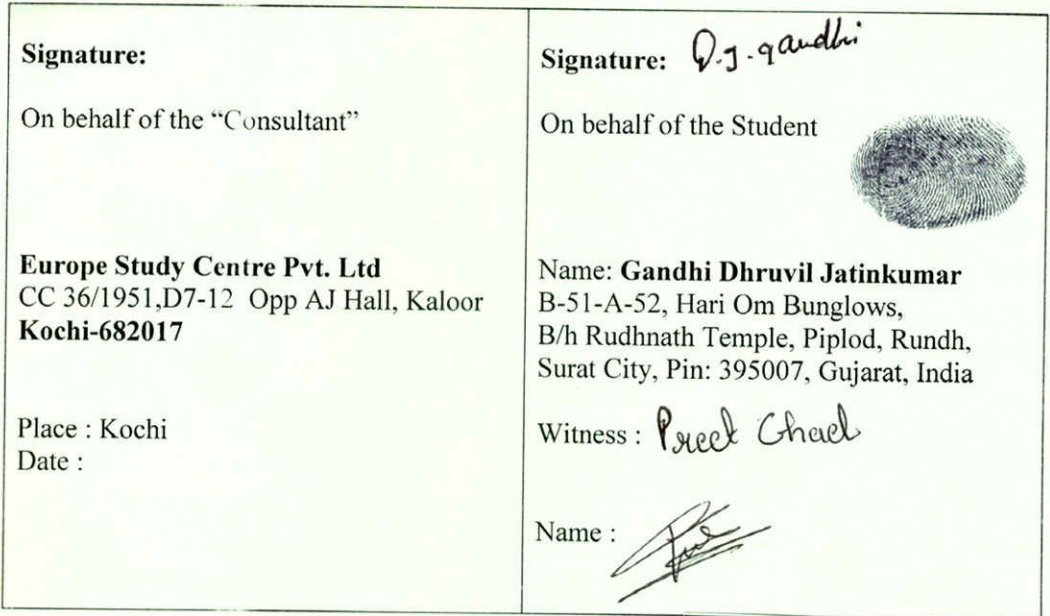 Signature:
On behalf of the “Consultant”
Europe Study Centre Pvt. Ltd
CC 36/1951,D7-12 Opp AJ Hall, Kaloor
Kochi-682017
Place : Kochi
Date :
Signature: D.J.gandhi
On behalf of the Student
Name: Gandhi Dhruvil Jatinkumar
B-51-A-52, Hari Om Bunglows,
B/h Rudhnath Temple, Piplod, Rundh,
Surat City, Pin: 395007, Gujarat, India
Witness :
Name :